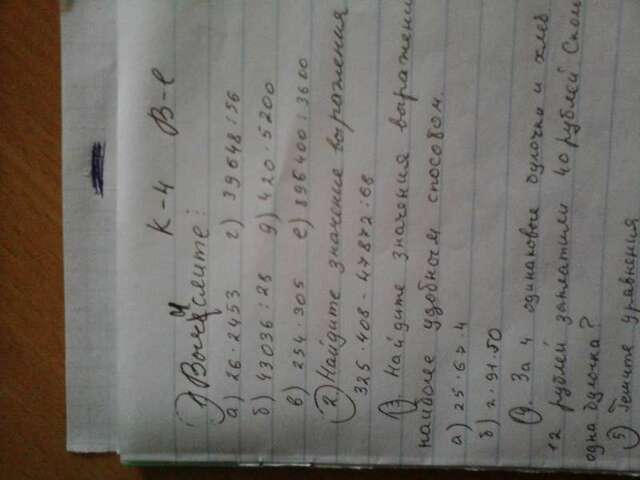 К-4 В-1
1) Вычислите:
а) 26·2453 г) 39648:56
б) 43036:28 д) 420·5200
в) 254·305 е) 896400:3600
2. Найдите значение выражения
325·408-47872:68
3. Найдите значения выражени
наиболее удобным способом.
а) 25·67·4
б) 2·91·50
4. За 4 одинаковые булочки и хлеб
12 рублей заплатили 40 рублей Скол
одна булочка?
5) Решите уравнения